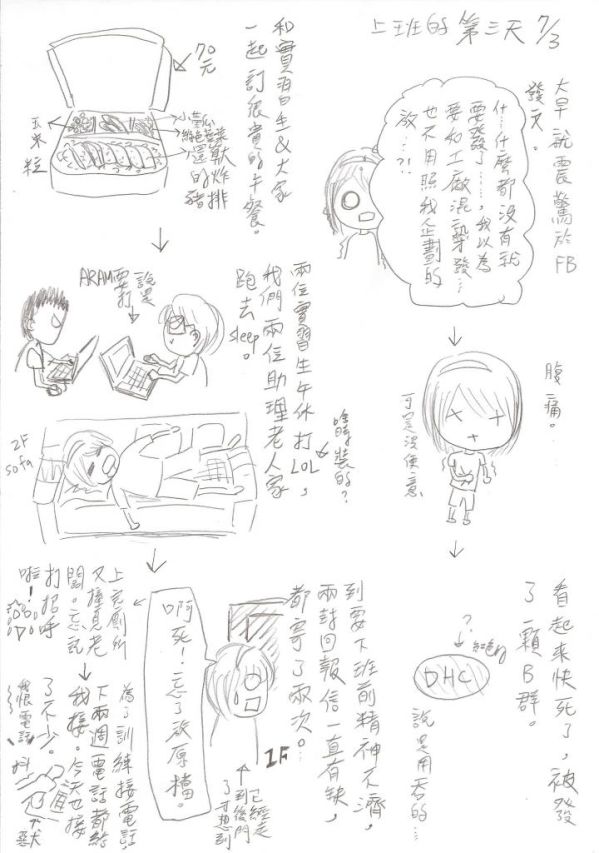 上班的第三天 7/3
大早就震驚於FB
發文。
什…什麼都沒有就
要發了……,我以為
要和工廠混染發…
也不用照我企劃的
放…?!
腹痛。
可是沒便意
看起來快死了,被發
了一顆B群。
?
DHC
說是用吞的…
和實習生&大家
一起訂很貴的午餐。
70元
玉米粒
小黃瓜
還是
炸豬排
兩位實習生午休打LOL,
我們兩位助理老人家
跑去sleep。
啥時裝的?
說是
要打
ARAM
2F
sofa
到要下班前精神不濟,
兩封回報信一直有缺,
都寄了兩次。…
啊死!忘了放原檔。
1F
已經走
到後門
了才想到
上完廁所
又撞見老
闆。忘記
打招呼
啦!
為了訓練接電話,
下兩週電話都給
我接。今天也接
了不少。
我恨電話
抖